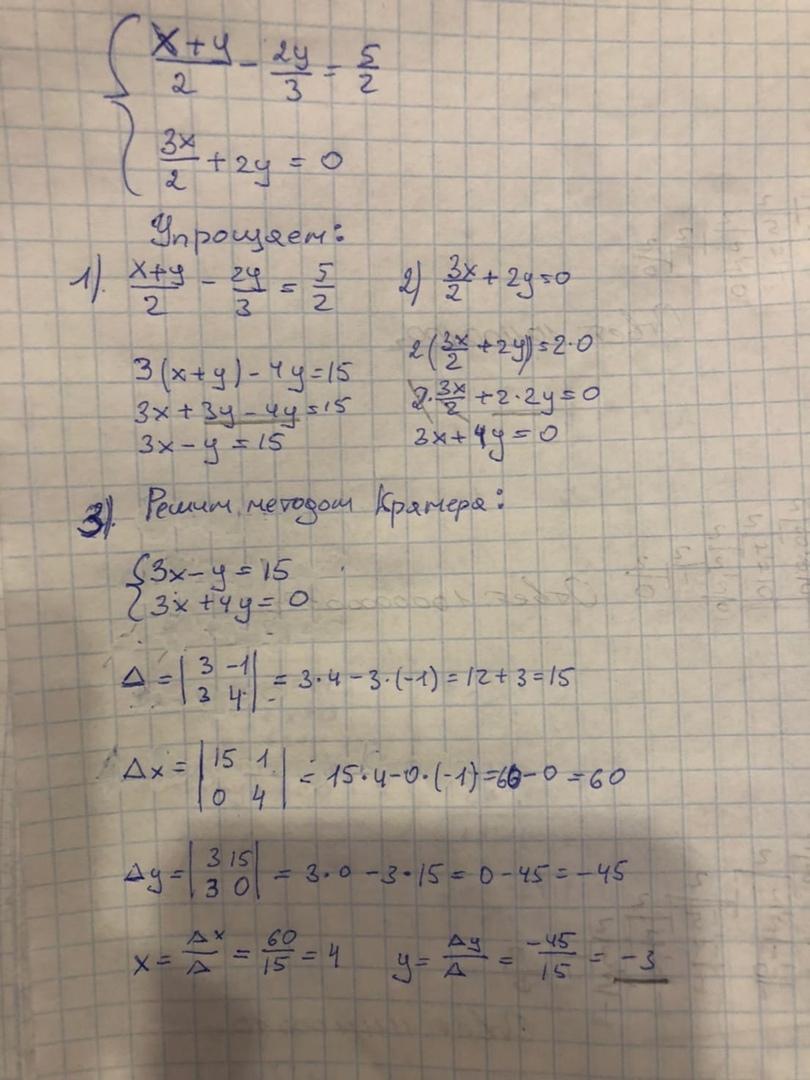 { x+y/2 - 2y/3 = 5/2
3x/2 + 2y = 0
Упрощаем:
1). x+y/2 - 2y/3 = 5/2
3(x+y)-4y=15
3x+3y-4y=15
3x-y=15
2) 3x/2 + 2y=0
2(3x/2 + 2y)=2·0
2·3x/2 + 2·2y=0
3x+4y=0
3). Решим методом Крамера:
{ 3x-y=15
3x+4y=0
Δ = | 3 -1 | = 3·4-3·(-1)=12+3=15
| 3 4 |
Δx = | 15 1 | = 15·4-0·(-1)=60-0=60
| 0 4 |
Δy = | 3 15 | = 3·0-3·15=0-45=-45
| 3 0 |
x = Δx/Δ = 60/15 = 4 y = Δy/Δ = -45/15 = -3